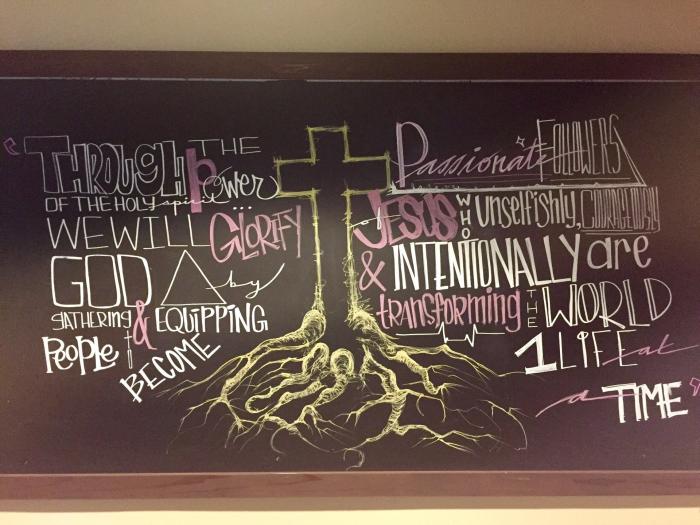 "THROUGH THE
power
OF THE HOLY spirit...
WE WILL GLORIFY
GOD by
GATHERING & EQUIPPING
People to
BECOME
Passionate FOLLOWERS
of JESUS WHO unselfishly, COURAGEOUSLY
& INTENTIONALLY are
transforming THE WORLD
1 LIFE at
a TIME"